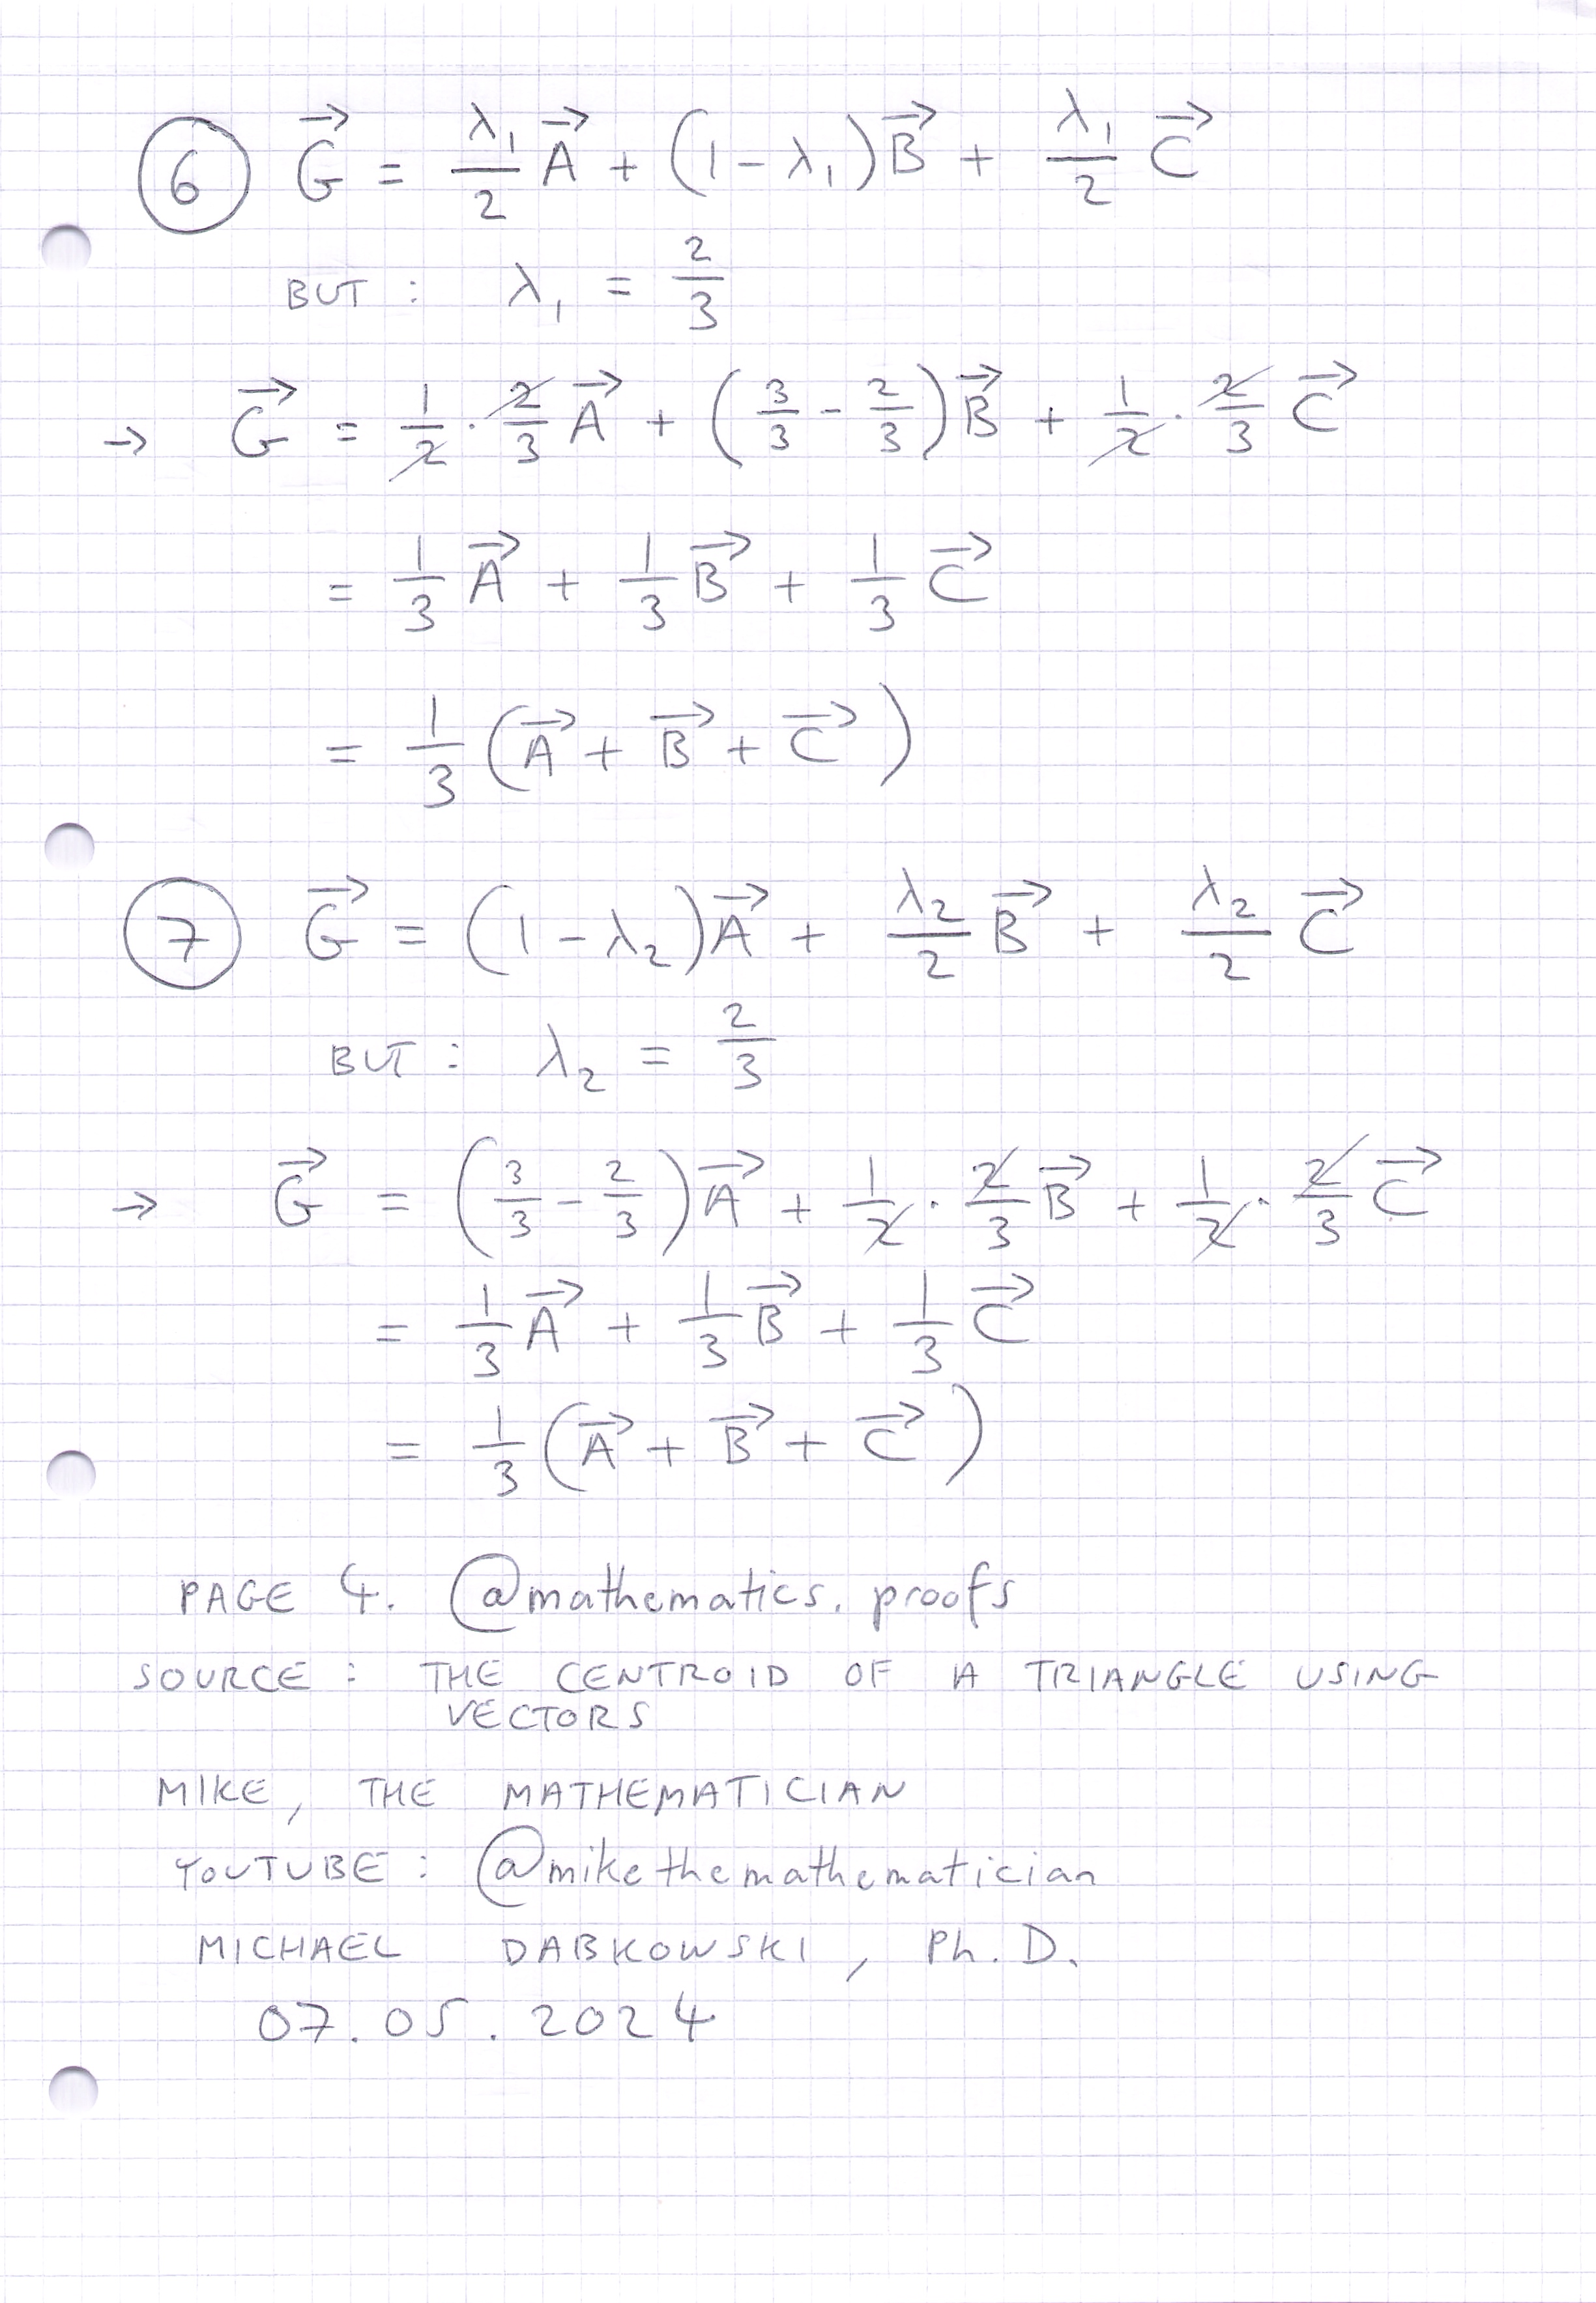 ⑥ $\vec{G} = \frac{\lambda_1}{2}\vec{A} + (1-\lambda_1)\vec{B} + \frac{\lambda_1}{2}\vec{C}$
BUT : $\lambda_1 = \frac{2}{3}$
→ $\vec{G} = \frac{1}{\cancel{2}} \cdot \frac{\cancel{2}}{3}\vec{A} + \left(\frac{3}{3} - \frac{2}{3}\right)\vec{B} + \frac{1}{\cancel{2}} \cdot \frac{\cancel{2}}{3}\vec{C}$
$= \frac{1}{3}\vec{A} + \frac{1}{3}\vec{B} + \frac{1}{3}\vec{C}$
$= \frac{1}{3}(\vec{A} + \vec{B} + \vec{C})$
⑦ $\vec{G} = (1-\lambda_2)\vec{A} + \frac{\lambda_2}{2}\vec{B} + \frac{\lambda_2}{2}\vec{C}$
BUT : $\lambda_2 = \frac{2}{3}$
→ $\vec{G} = \left(\frac{3}{3} - \frac{2}{3}\right)\vec{A} + \frac{1}{\cancel{2}} \cdot \frac{\cancel{2}}{3}\vec{B} + \frac{1}{\cancel{2}} \cdot \frac{\cancel{2}}{3}\vec{C}$
$= \frac{1}{3}\vec{A} + \frac{1}{3}\vec{B} + \frac{1}{3}\vec{C}$
$= \frac{1}{3}(\vec{A} + \vec{B} + \vec{C})$
PAGE 4. @mathematics.proofs
SOURCE : THE CENTROID OF A TRIANGLE USING
VECTORS
MIKE, THE MATHEMATICIAN
YOUTUBE : @mikethemathematician
MICHAEL DABKOWSKI, Ph.D.
07.05.2024